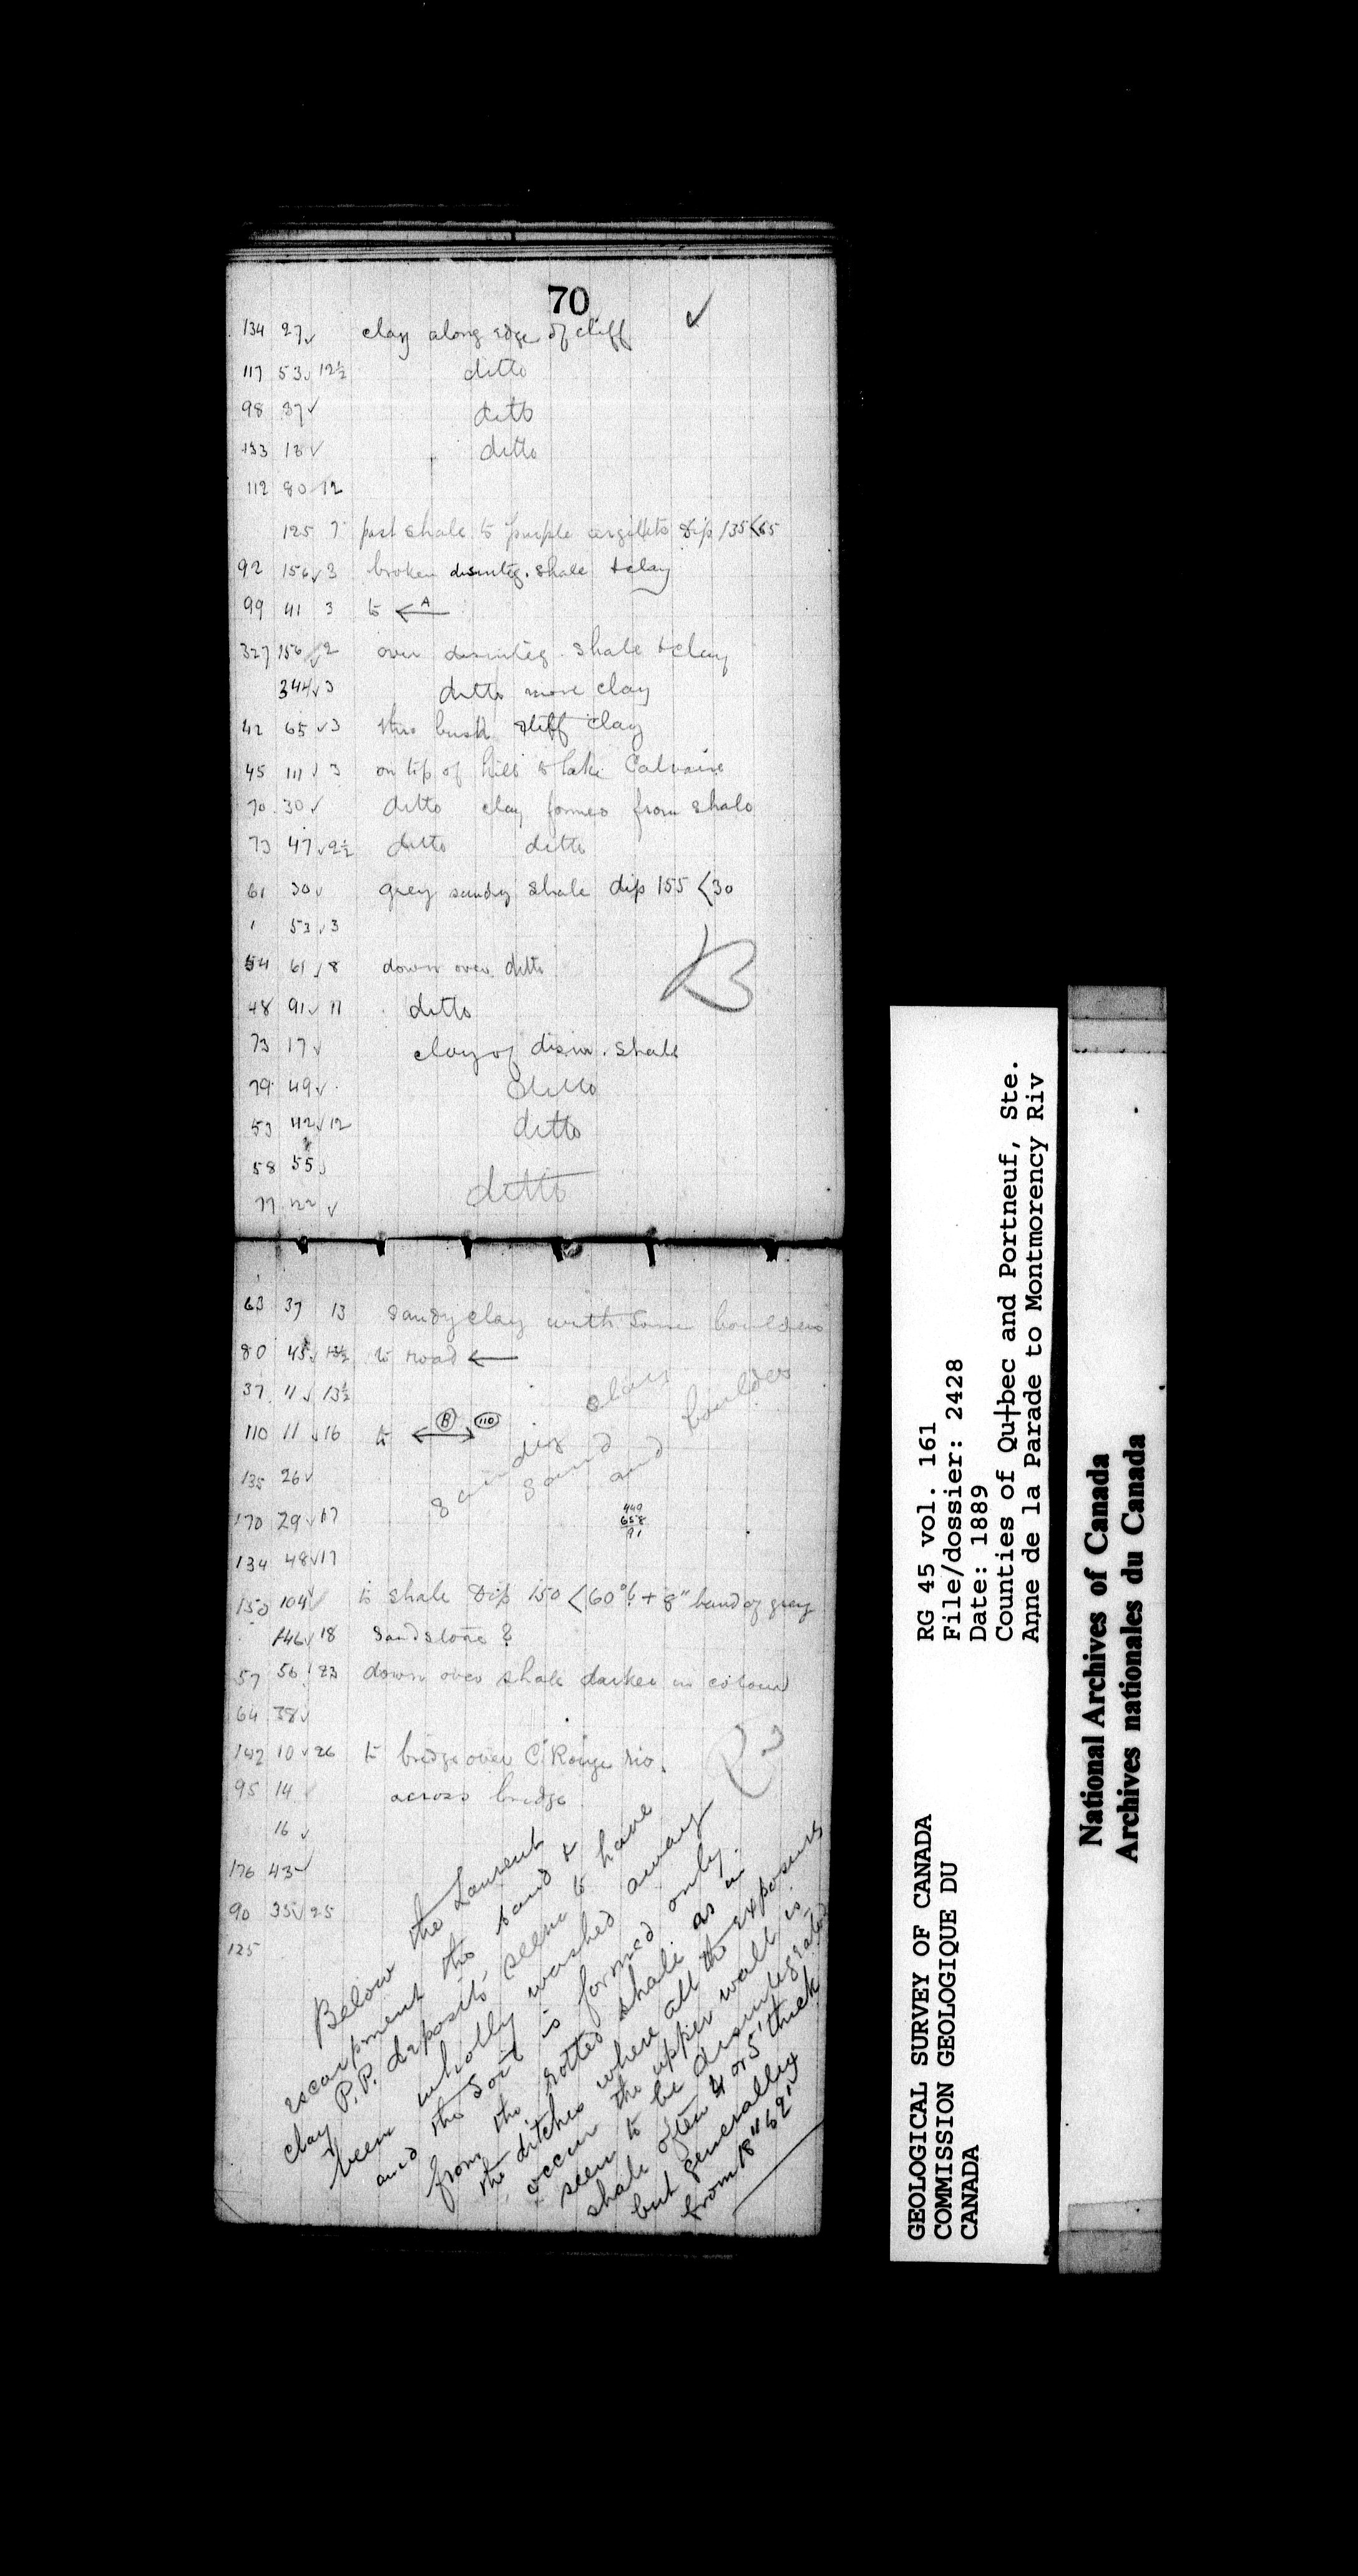 70 ✓
134 27✓ clay along edge of cliff
117 53✓ 12½ ditto
98 37✓ ditto
133 18✓ ditto
112 80 12
125 7 past shale to purple argillite dip 135<65
92 156✓ 3 broken disinteg. shale + clay
99 41 3 to ← A
327 156✓ 2 over disinteg. shale + clay
344✓ 3 ditto more clay
42 65✓ 3 thro bush stiff clay
45 111✓ 3 on top of hill to lake Calvaire
70 30✓ ditto clay formed from shale
73 47✓ 9½ ditto ditto
61 30✓ grey sandy shale dip 155 <30
1 53✓ 3
54 61✓ 8 down over ditto
B
48 91✓ 11 ditto
73 17✓ clay of disin. shale
79 49✓ ditto
53 42✓ 12 ditto
58 55✓
77 22✓ ditto
63 37 13 sandy clay with some boulders
80 45✓ 13½ to road ←
37 11✓ 13½
110 11✓ 16 to ← B 110 →
sandy clay
sand
and boulder
135 26✓
170 29✓ 17
449
658
91
134 48✓ 17
150 104✓ to shale dip 150 <60° + 8" band of grey
146✓ 18 sandstone?
57 56 23 down over shale darker in colour
64 38✓
142 10✓ 26 to bridge over C. Rouge riv.
95 14 across bridge
16✓
176 43✓
90 35✓ 25
125
Below the Laurent
escarpment the sand &
clay P.P. deposits seem to have
been wholly washed away
and the soil is formed only
from the rotted shale as in
the ditches where all the exposures
occur the upper wall is
seen to be disintegrated
shale often 4 or 5' thick
but generally
from 18" to 2'
GEOLOGICAL SURVEY OF CANADA
COMMISSION GEOLOGIQUE DU
CANADA
RG 45 vol. 161
File/dossier: 2428
Date: 1889
Counties of Qu†bec and Portneuf, Ste.
Anne de la Parade to Montmorency Riv
National Archives of Canada
Archives nationales du Canada